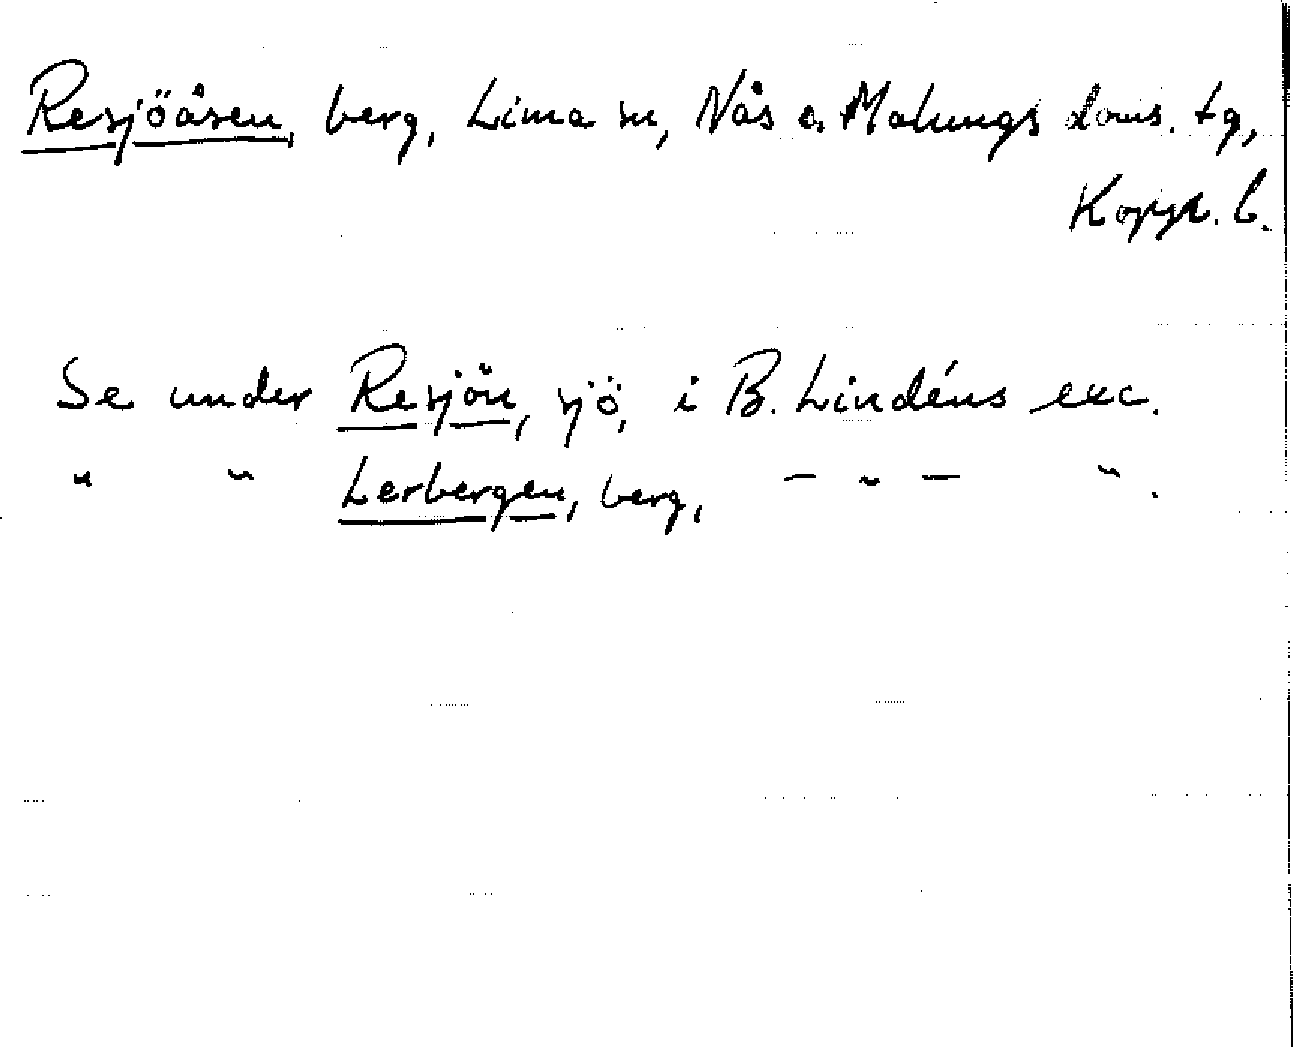 Resjöåsen, berg, Lima sn, Nås o. Malungs doms. tg,
Kopp. l.
Se under Resjön, sjö, i B. Lindéns exc.
" " Lerbergen, berg, – " – " .